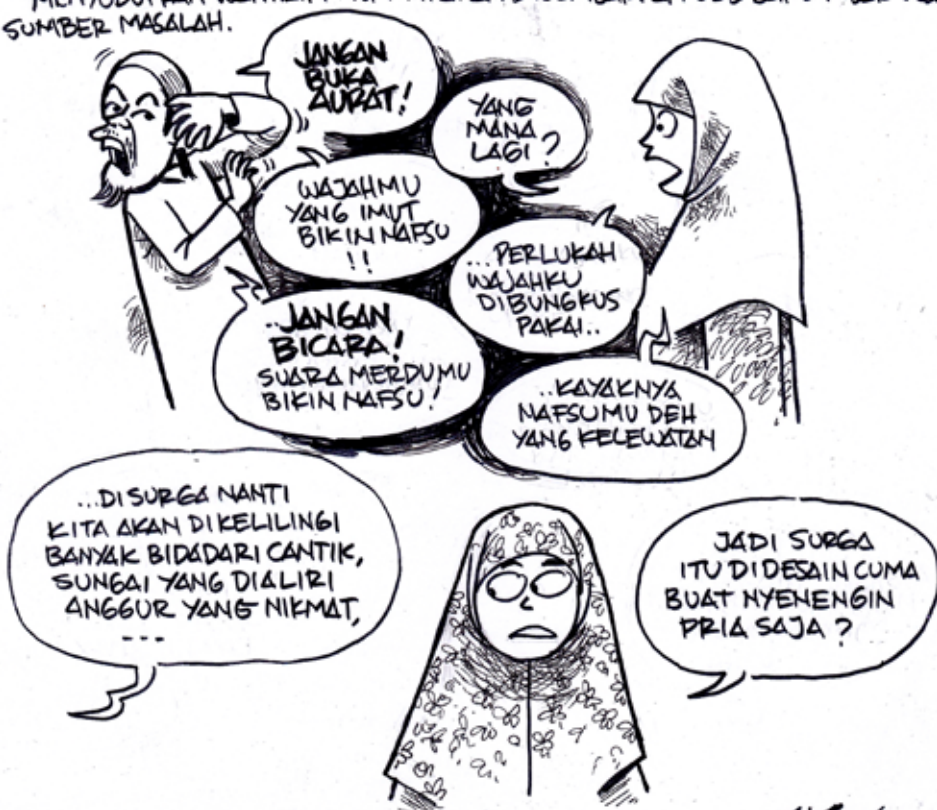 SUMBER MASALAH.
JANGAN
BUKA
AURAT!
YANG
MANA
LAGI?
WAJAHMU
YANG IMUT
BIKIN NAFSU
!!
...PERLUKAH
WAJAHKU
DIBUNGKUS
PAKAI..
..JANGAN
BICARA!
SUARA MERDUMU
BIKIN NAFSU!
..KAYAKNYA
NAFSUMU DEH
YANG KELEWATAN
...DI SURGA NANTI
KITA AKAN DIKELILINGI
BANYAK BIDADARI CANTIK,
SUNGAI YANG DIALIRI
ANGGUR YANG NIKMAT,
---
JADI SURGA
ITU DIDESAIN CUMA
BUAT NYENENGIN
PRIA SAJA?